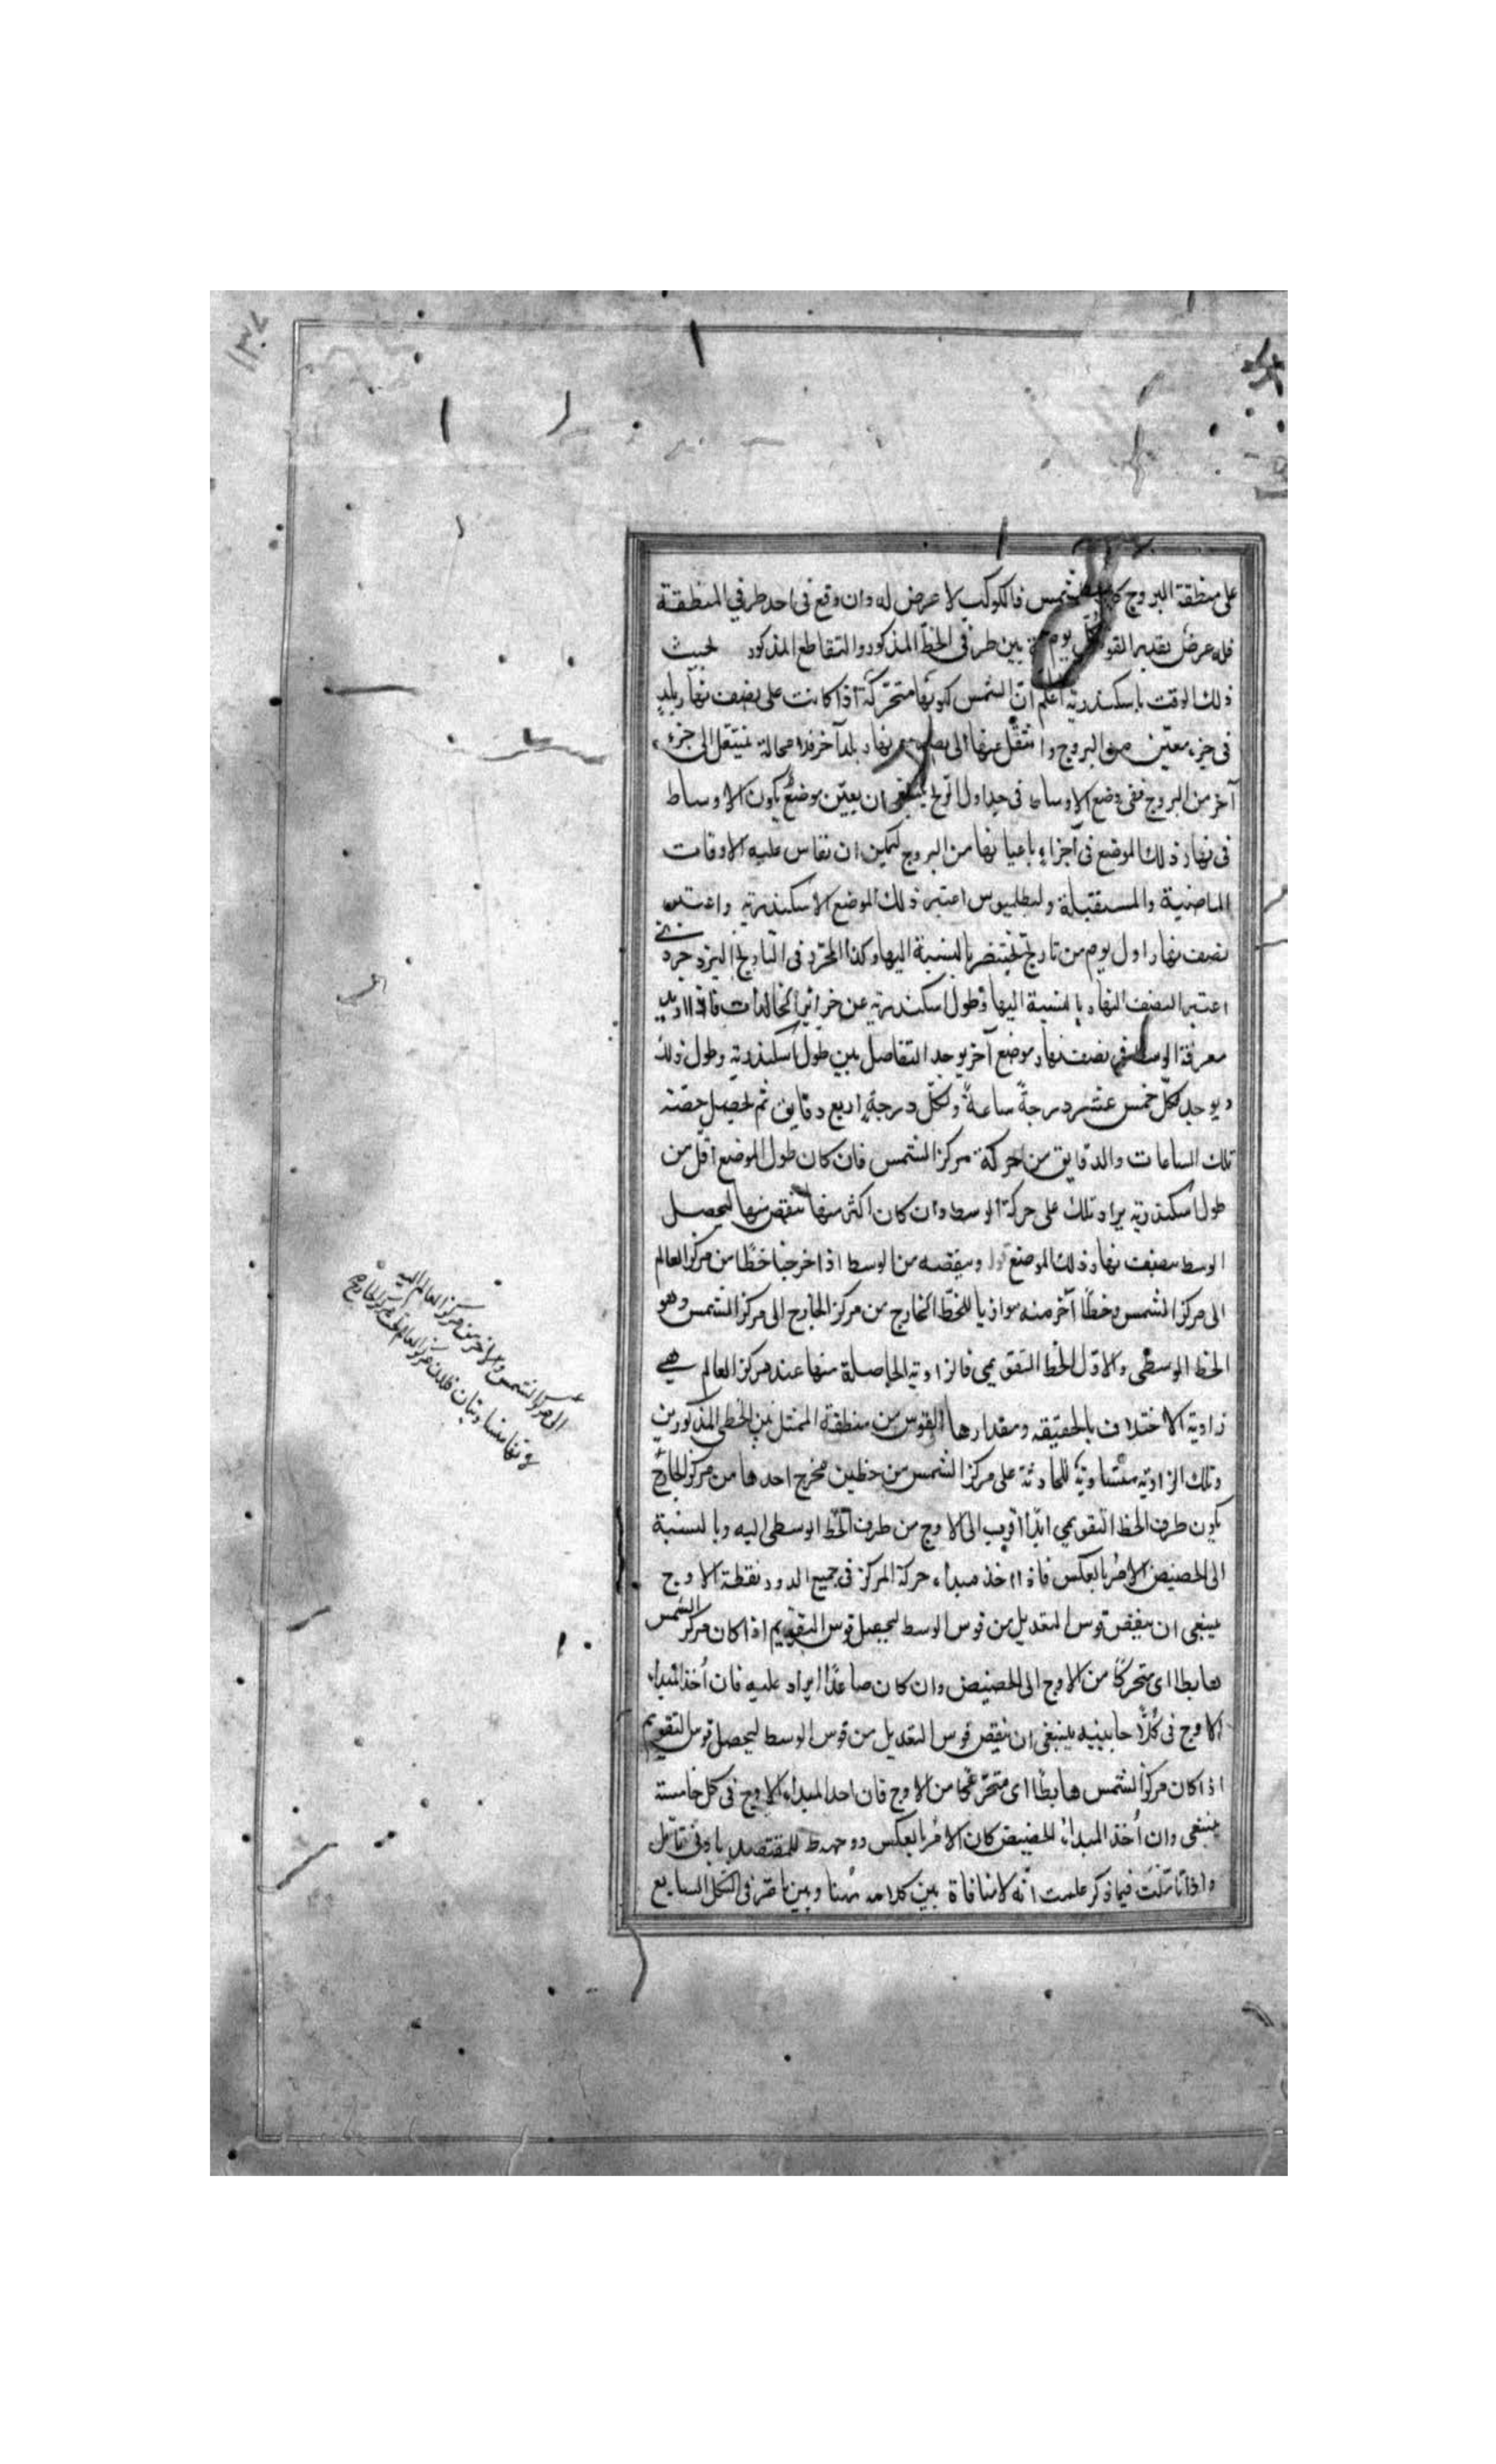 على منطقة البروج كالشمس فالكوكب لا عرض له وان وقع فى احد طرفي المنطقة
فله عرض بقدر القو بين طرفى الخط المذكور والتقاطع المذكور بحيث
ذلك الوقت باسكندرية اعلم انّ الشمس لكونها متحركة اذا كانت على نصف نهار بلد
فى جزء معيّن من البروج وانتقل عنها الى نصف نهار بلد آخر فلا محالة ينتقل الى جزء
آخر من البروج ففى وضع الاوساط فى جداول ينبغى ان يعيّن موضع يكون الاوساط
فى نهار ذلك الموضع فى اجزاء باعيانها من البروج ليمكن ان تقاس عليه الاوقات
الماضية والمستقبلة وبطلميوس اعتبر ذلك الموضع الاسكندرية واعتبر
نصف نهار اول يوم من تاريخ بختنصر بالنسبة اليها وكذا المحرّر فى التاريخ اليزدجردى
اعتبر النصف النهار بالنسبة اليها وطول اسكندرية عن جزائر الخالدات فاذا اريد
معرفة الوسط فى نصف نهار موضع آخر يوجد التفاضل بين طول اسكندرية وطول ذلك
ويوجد لكلّ خمس عشر درجةً ساعةً ولكلّ درجةٍ اربع دقايق ثم يحصل حصّة
تلك الساعات والدقايق من حركة مركز الشمس فان كان طول الموضع اقلّ من
طول اسكندرية يزاد تلك على حركة الوسط وان كان اكثر منها ينقص منها ليحصل
الوسط بنصف نهار ذلك الموضع وينقصه من الوسط اذا اخرجنا خطّا من مركز العالم
الى مركز الشمس وخطّا آخر منه موازيا للخطّ الخارج من مركز الخارج الى مركز الشمس وهو
الخط الوسطى والاوّل الخط التقويمى فالزاوية الحاصلة منها عند مركز العالم هى
زاوية الاختلاف بالحقيقة ومقدارها القوس من منطقة الممثل بين الخطى المذكورين
وتلك الزاوية متساوية للحادثة على مركز الشمس من خطين مخرج احدها من مركز الخارج
يكون طرف الخط التقويمى ابدا اقرب الى الاوج من طرف الخط الوسطى اليه وبالنسبة
الى الحضيض الامر بالعكس فاذا اخذ مبداء حركة المركز فى جميع الدور نقطة الاوج
ينبغى ان ينقص قوس التعديل من قوس الوسط ليحصل قوس التقويم اذا كان مركز الشمس
هابطا اى متحركا من الاوج الى الحضيض وان كان صاعدًا يزاد عليه فان أخذ المبداء
الاوج فى كلا جانبيه ينبغى ان ينقص قوس التعديل من قوس الوسط ليحصل قوس التقويم
اذا كان مركز الشمس هابطًا اى متحرّكا من الاوج فان احد المبداء الاوج فى كل
ينبغى وان أخذ المبداء الحضيض كان الامر بالعكس بادنى تامّل
واذا تاملت فيما ذكر علمت انّه لا منافاة بين كلامه هنا وبين ما مرّ فى الشكل السابع
الى مركز الشمس والاخر من مركز العالم اليه